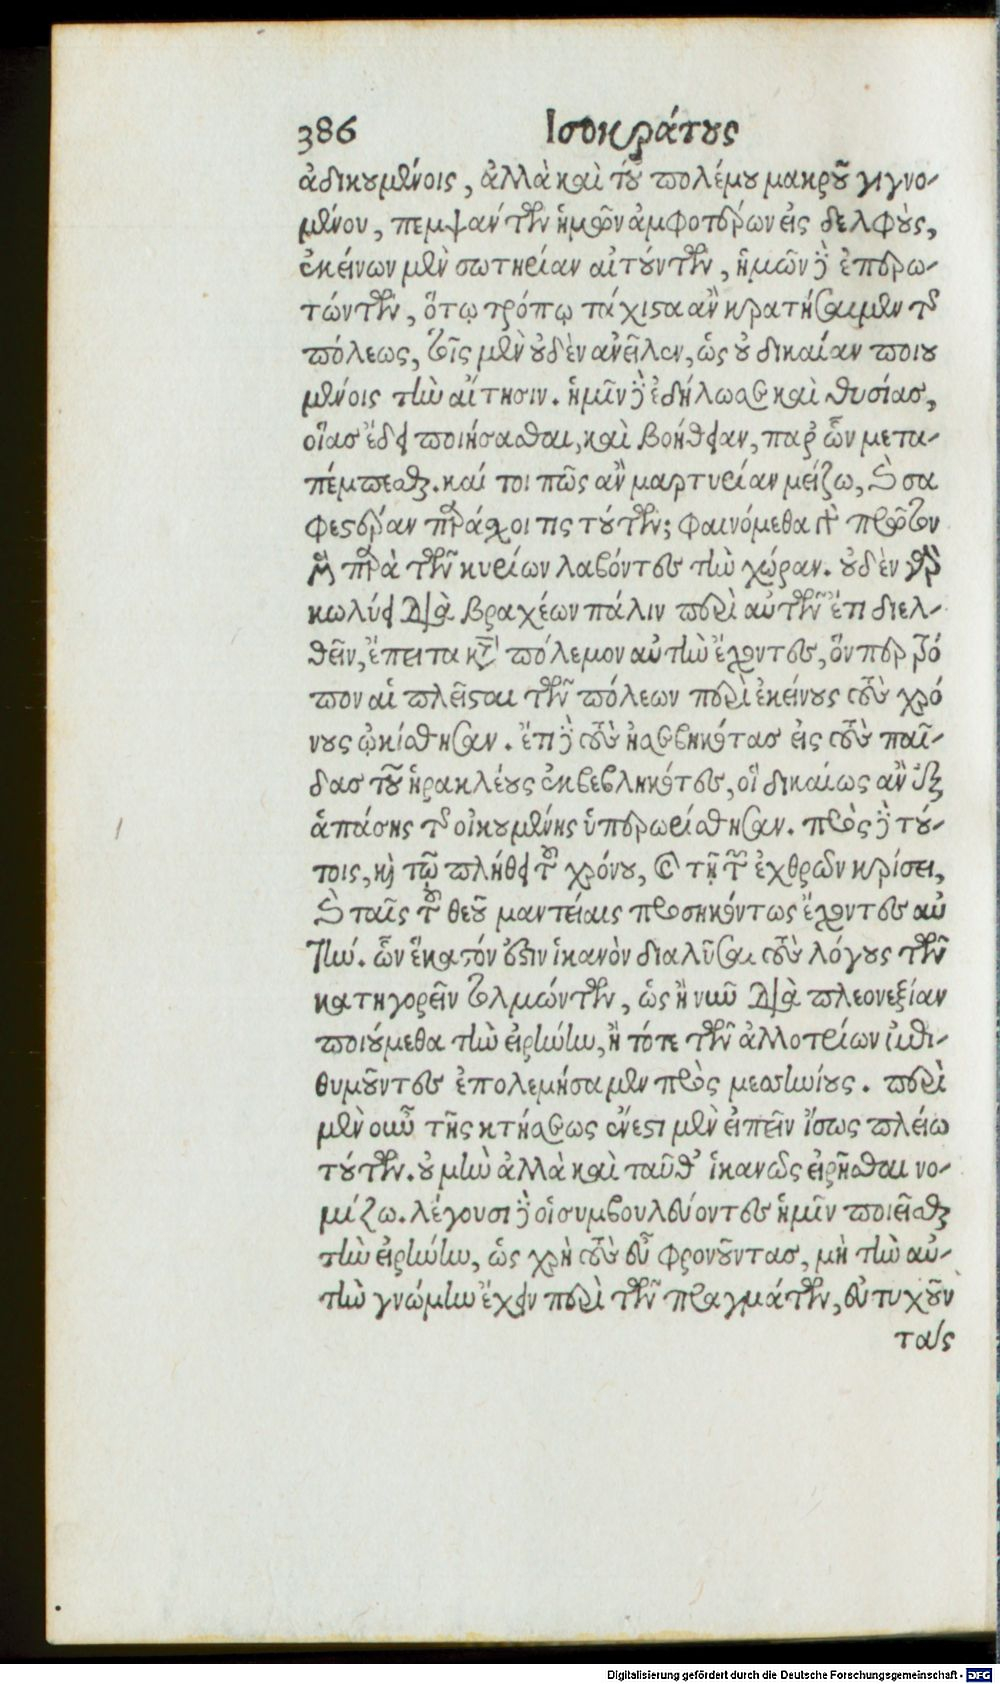 386 Ισοκράτους
ἀδικουμένοις, ἀλλὰ καὶ τοῦ πολέμου μακροῦ γιγνο-
μένου, πεμψάντων ἡμῶν ἀμφοτέρων εἰς δελφοὺς,
ἐκείνων μὲν σωτηρίαν αἰτούντων, ἡμῶν δὲ ἐπερω-
τώντων, ὅτῳ τρόπῳ τάχιστα ἂν κρατήσαιμεν τῆς
πόλεως, τοῖς μὲν οὐδὲν ἀνεῖλεν, ὡς οὐ δικαίαν ποιου
μένοις τὴν αἴτησιν. ἡμῖν δὲ ἐδήλωσε καὶ θυσίας,
οἵας ἔδει ποιήσασθαι, καὶ βοήθειαν, παρ᾽ ὧν μετα-
πέμπεσθαι. καί τοι πῶς ἂν μαρτυρίαν μείζω, ἢ σα
φεστέραν παράσχοι τις τούτων; φαινόμεθα γὰρ πρῶτον
μὲν παρὰ τῶν κυρίων λαβόντες τὴν χώραν. οὐδὲν γὰρ
κωλύει διὰ βραχέων πάλιν περὶ αὐτῶν ἔτι διελ-
θεῖν, ἔπειτα κατὰ πόλεμον αὐτὴν ἔχοντες, ὅνπερ τρό
πον αἱ πλεῖσται τῶν πόλεων περὶ ἐκείνους τοὺς χρό
νους ᾠκίσθησαν. ἔτι δὲ τοὺς ἠσεβηκότας εἰς τοὺς παῖ-
δας τοῦ ἡρακλέους ἐκβεβληκότες, οἳ δικαίως ἂν ἐξ
ἁπάσης τῆς οἰκουμένης ὑπερωρίσθησαν. πρὸς δὲ τού-
τοις, καὶ τῷ πλήθει τοῦ χρόνου, καὶ τῇ τῶν ἐχθρῶν κρίσει,
καὶ ταῖς τοῦ θεοῦ μαντείαις προσηκόντως ἔχοντες αὐ
τήν. ὧν ἕκαστόν ἐστιν ἱκανὸν διαλῦσαι τοὺς λόγους τῶν
κατηγορεῖν τολμώντων, ὡς ἢ νῦν διὰ πλεονεξίαν
ποιούμεθα τὴν εἰρήνην, ἢ τότε τῶν ἀλλοτρίων ἐπι-
θυμοῦντες ἐπολεμήσαμεν πρὸς μεσηνίους. περὶ
μὲν οὖν τῆς κτήσεως ἔνεστι μὲν εἰπεῖν ἴσως πλείω
τούτων. οὐ μὴν ἀλλὰ καὶ ταῦθ᾽ ἱκανῶς εἰρῆσθαι νο-
μίζω. λέγουσι δὲ οἱ συμβουλεύοντες ἡμῖν ποιεῖσθαι
τὴν εἰρήνην, ὡς χρὴ τοὺς εὖ φρονοῦντας, μὴ τὴν αὐ-
τὴν γνώμην ἔχειν περὶ τῶν πραγμάτων, εὐτυχοῦν
τας
Digitalisierung gefördert durch die Deutsche Forschungsgemeinschaft - DFG